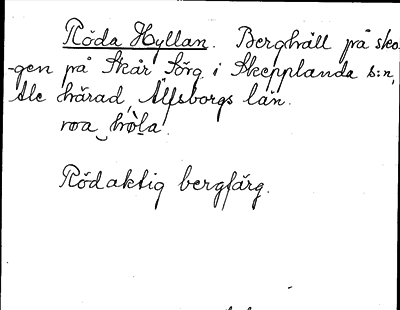 Röda Hyllan. Berghäll på sko-
-gen på Skår Sörg. i Skepplanda s:n,
Ale härad, Älfsborgs län.
roa hòla.
Rödaktig bergfärg.